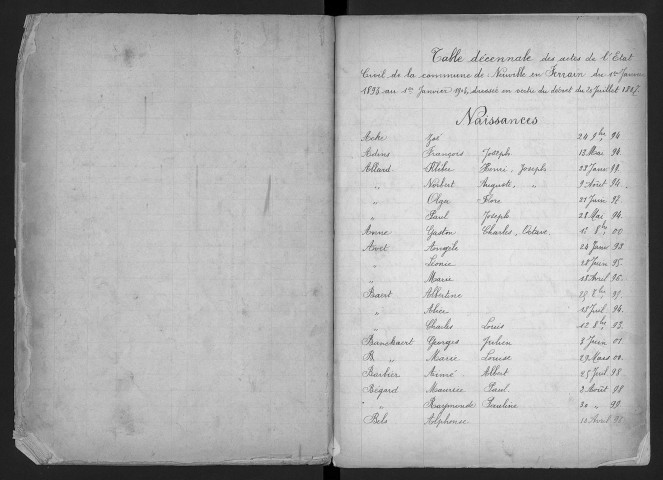 Table décennale des actes de l'Etat
Civil de la commune de Neuville en Ferrain du 1er Janvier
1893 au 1er Janvier 1903, dressée en vertu du décret du 20 Juillet 1807.
Naissances
Acke Zoé 24 9bre 94
Adins François Joseph 13 Mai 94
Allard Kléber Henri, Joseph 23 Janv 99
" Norbert Auguste, " 9 Août 94
" Olga Flore 21 Juin 97
" Paul Joseph 28 Mai 94
Anne Gaston Charles, Octave 12 8bre 00
Avet Angèle 24 Janv 93
" Léonie 28 Juin 95
" Marie 18 Avril 96
Baert Albertine 8bre 99
" Alice 18 Juil 94
" Charles Louis 12 8bre 93
Banckaert Georges Julien 3 Juin 01
B " Marie Louise 29 Mars 00
Barbier Aimé Albert 25 Juil 98
Bégard Maurice Paul 2 Août 98
" " Raymonde Pauline 30 " 99
Bels Alphonse 10 Avril